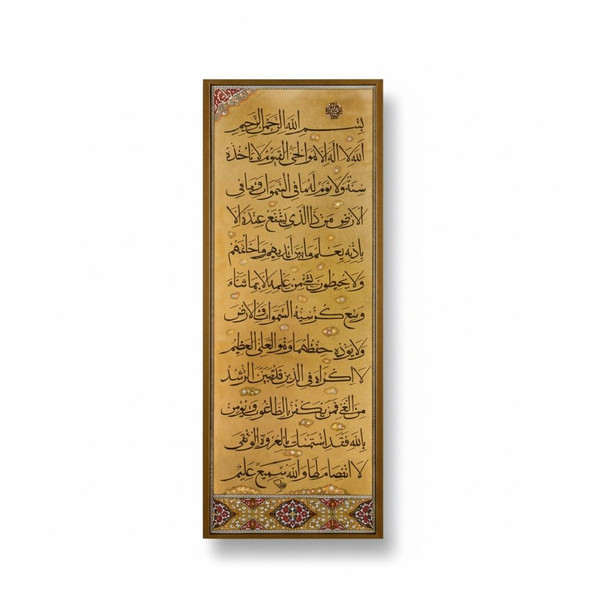 بسم الله الرحمن الرحيم
الله لا اله الا هو الحى القيوم لا تاخذه
سنة ولا نوم له ما فى السموات وما فى
الارض من ذا الذى يشفع عنده الا
باذنه يعلم ما بين ايديهم وما خلفهم
ولا يحيطون بشىء من علمه الا بما شاء
وسع كرسيه السموات والارض
ولا يؤده حفظهما وهو العلى العظيم
لا اكراه فى الدين قد تبين الرشد
من الغى فمن يكفر بالطاغوت ويؤمن
بالله فقد استمسك بالعروة الوثقى
لا انفصام لها والله سميع عليم